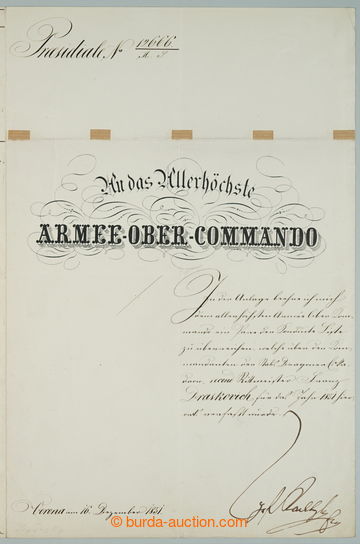 Presidiale No 12666.
An das Allerhöchste
ARMEE-OBER-COMMANDO
In der Anlage beehre ich mich
dem allerhöchsten Armee Ober Com-
mando ein Paar Conduite Liste
zu überreichen, welche über den Com-
mandanten der Stabs Dragoner
Rittmeister Franz
Draskovich, für das Jahr 1851 hier-
orts verfasst wurde.
Verona am 16. Dezember 1851.
burda-auction.com